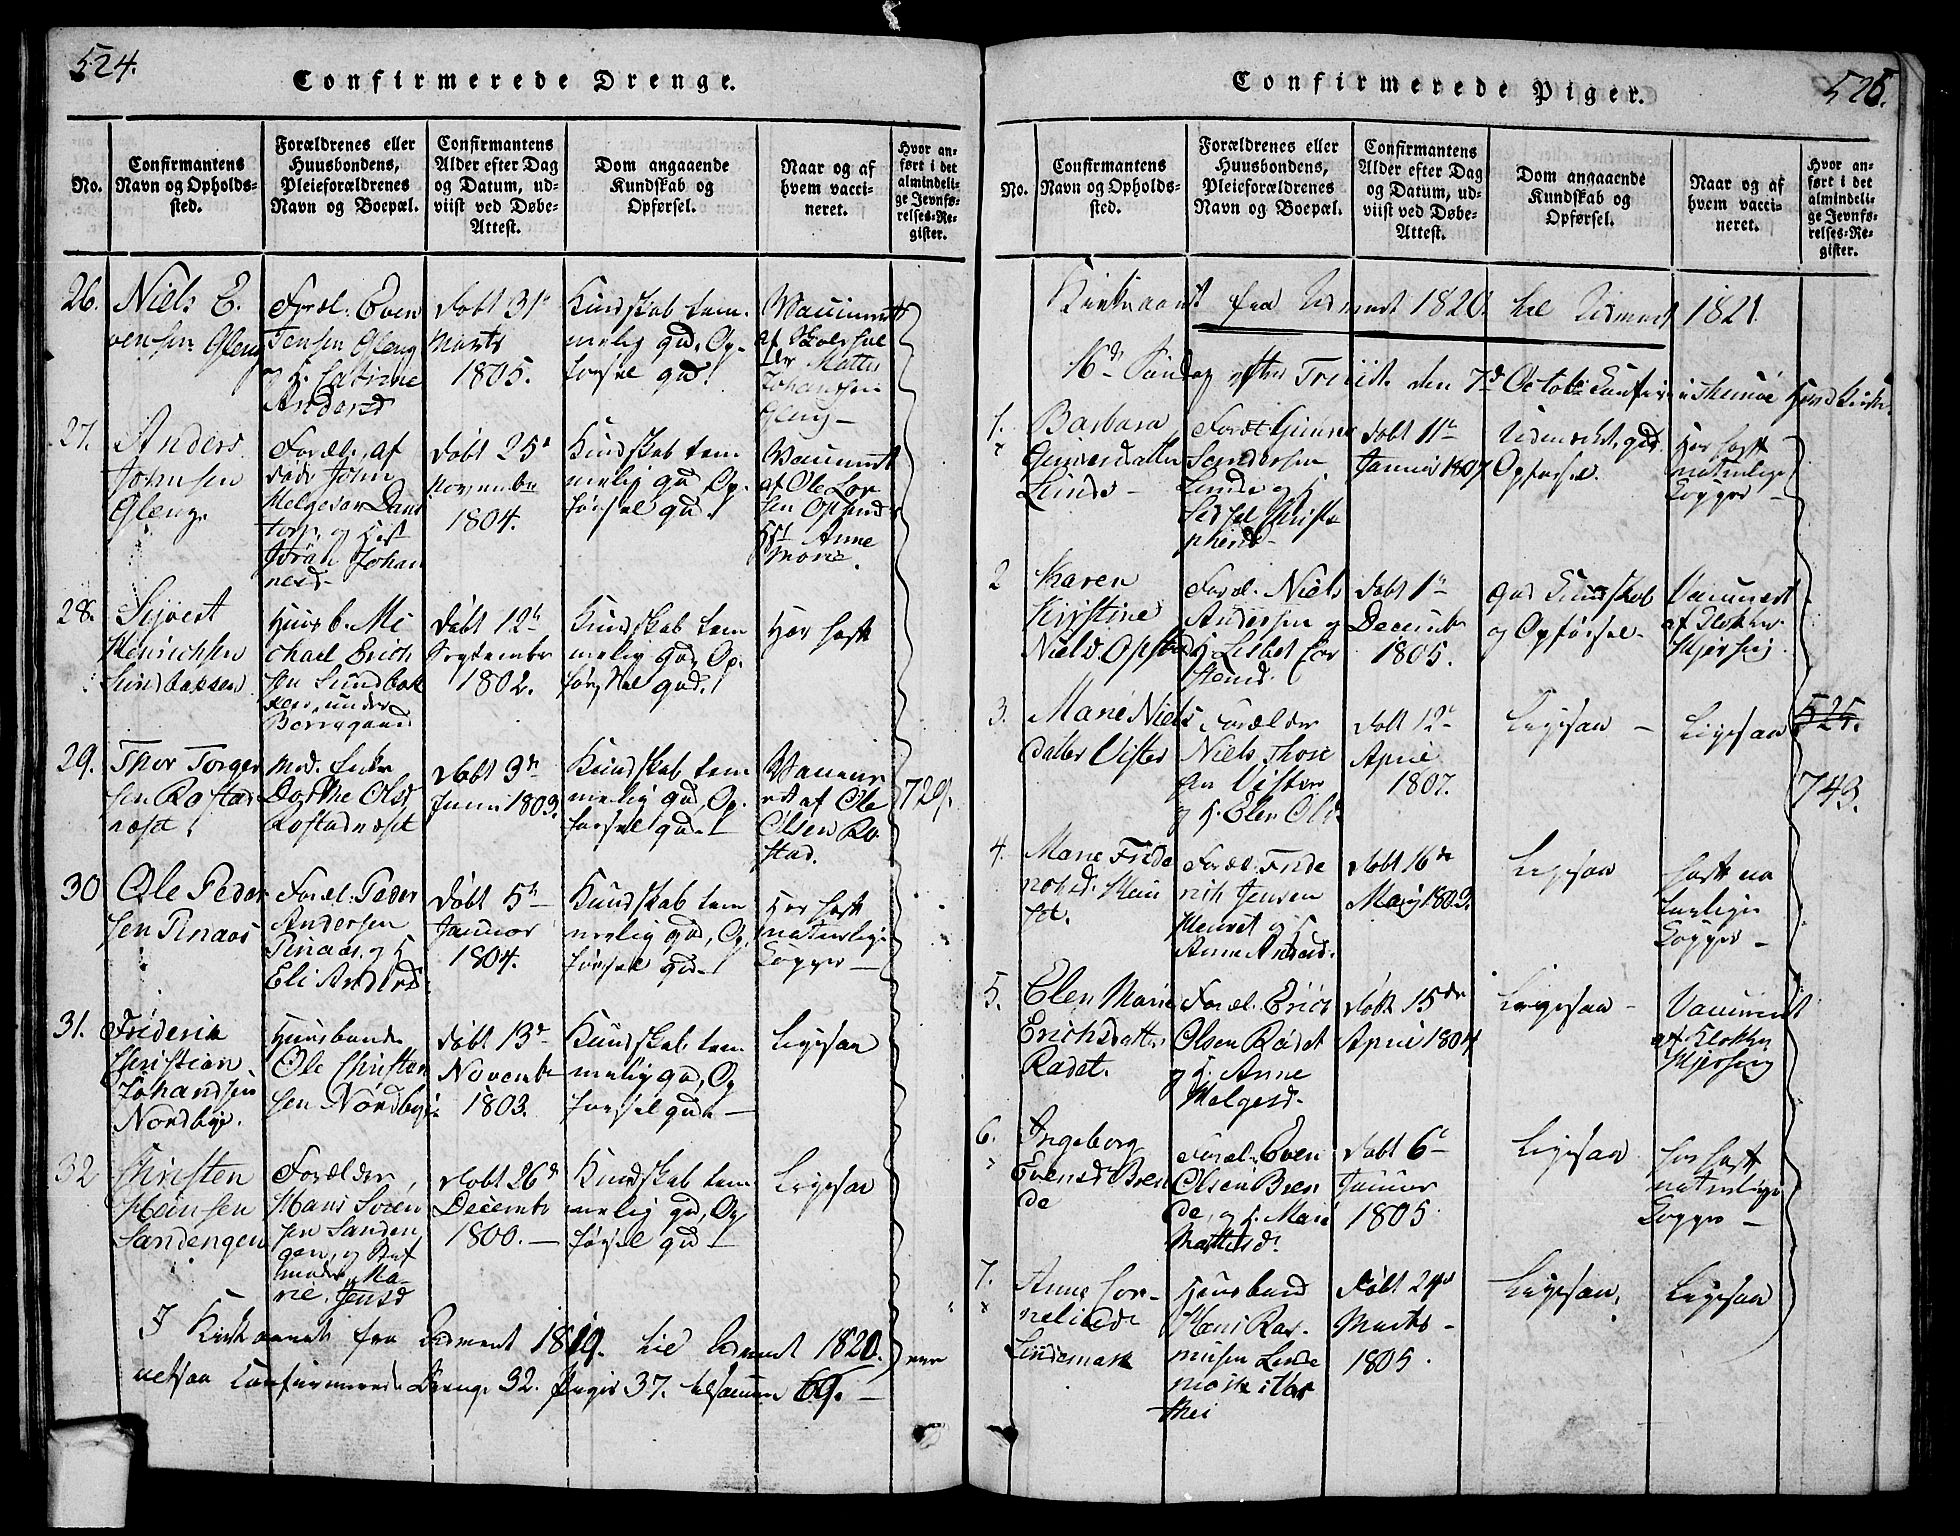 524.
Confirmerede Drenge.
No.
Confirmantens
Navn og Opholds-
sted.
Forældrenes eller
Huusbondens,
Pleieforældrenes
Navn og Boepæl.
Confirmantens
Alder efter Dag
og Datum, ud-
viist ved Døbe-
Attest.
Dom angaaende
Kundskab og
Opførsel.
Naar og af
hvem vacci-
neret.
Hvor an-
ført i det
almindeli-
ge Jevnfø-
relses-Re-
gister.
26.
Niels E.
vensen Gleng
Foræl. Even
Jensen Gleng
og H. Catrine
Andersd
Døbt 31
Marts
1805.
Kundskab tem-
melig god, Op-
førsel god!
Vaccineret
af
Mattis
Johannsen
Gleng
27.
Anders
Johnsen
Gleng.
Foræl. af
døde John
Helgesen
torp, og
Jøran Johan
nesd.
Døbt 25
November
1804.
Kundskab tem
melig god Op-
førsel god!
Vaccineret
af Ole Lar
sen Opsund
Anne
Morie.
28.
Syvert
Hinrichsen
Sundbakken
Huusb. Mi
chael Erich
sen Sundbak
ken, under
Borregaard
Døbt 12
September
1802.
Kundskab tem
melig god, Op-
førsel god.!
Har haft
29.
Thor Torger
sen Rostad
næst
Mod. Enke
Dorthe Olsd
Rostadnæst
Døbt 3
Junii 1803.
Kundskab tem
melig god, Op-
førsel god.!
Vaccine
ret af Ole
Olsen Ro
stad.
729.
30
Ole Peder
sen Pinaas
Foræl. Peder
Andersen
Pinaas, og H
Eli Andersd
Døbt 5
Januar
1804.
Kundskab tem
melig god, Op
førsel god!
Har haft
naturlige
Copper
31.
Friderik
Christian
Johandsen
Nordbye.
Huusbonde
Ole Christen
sen Nordbye
Døbt 13
November
1803.
Kundskab tem
melig god, Op
førsel god.
Ligesaa
32
Christen
Hansen
Sandengen
Forælder,
Hans Søren
sen Sanden
gen, og Stif
moder, Ma-
rie Jensd
Døbt 26
December
1800.
Kundskab tem
melig god, Op
førsel god!
Ligesaa
I Kirkeaaret fra Advent 1819. til Advent 1820.
altsaa Confirmerede Drenge 32. Piger 37. tilsammen 69.
525.
Confirmerede Piger.
No.
Confirmantens
Navn og Opholds-
sted.
Forældrenes eller
Huusbondens,
Pleieforældrenes
Navn og Boepæl.
Confirmantens
Alder efter Dag
og Datum, ud-
viist ved Døbe-
Attest.
Dom angaaende
Kundskab og
Opførsel.
Naar og af
hvem vacci-
neret.
Hvor an-
ført i det
almindeli-
ge Jevnfø-
relses-Re-
gister.
Kirkeaaret fra Advent 1820. til Advent 1821.
Søndag efter Trinit. den 7 October i Kirke.
1.
Barbara
Gunersdatter
Lunde
Foræl. Gunner
Sandersen
Lunde og H
Sidsel Christo
phersd.
Døbt 11
Januar 1807.
Udmerket god
Opførsel.
Har haft
naturlige
Copper
2
Karen
Kirstine
Nielsd. Opsund
Foræl. Niels
Andersen og
H. Lisbet Car
stensd.
Døbt 1
December
1805.
god Kundskab
og Opførsel.
Vaccineret
af Klokker
Kjersing
3.
Marie Niels
datter Vister
Forælder
Niels Thore
sen Vister
og H. Elen Olsd.
Døbt 12
April
1807.
Ligesaa
Ligesaa
525.
743.
4.
Marie Fride
richsd.
Foræl. Fride
rich Jensen
og H
Anne Andersd.
Døbt 16
May 1803.
Ligesaa
haft na
turlige
Copper
5.
Elen Marie
Erichsdatter
Rødet.
Foræl. Erich
Olsen Rødet
og H. Anne
Helgesd.
Døbt 15
April 1804
Ligesaa
Vaccineret
af Klokker
Kjersing
6.
Ingeborg
Evensd Bren
de
Foræl. Even
Olsen Bren
de, og H. Mari
Mattisd.
Døbt 6
Januar
1805
Ligesaa
har haft
naturlige
Copper
7.
Anne Cor-
neliædr
Lindemark
Huusbond
Hans Ras-
musen Linde
mark i Var
thei
Døbt 24
Marts
1805.
Ligesaa,
Ligesaa